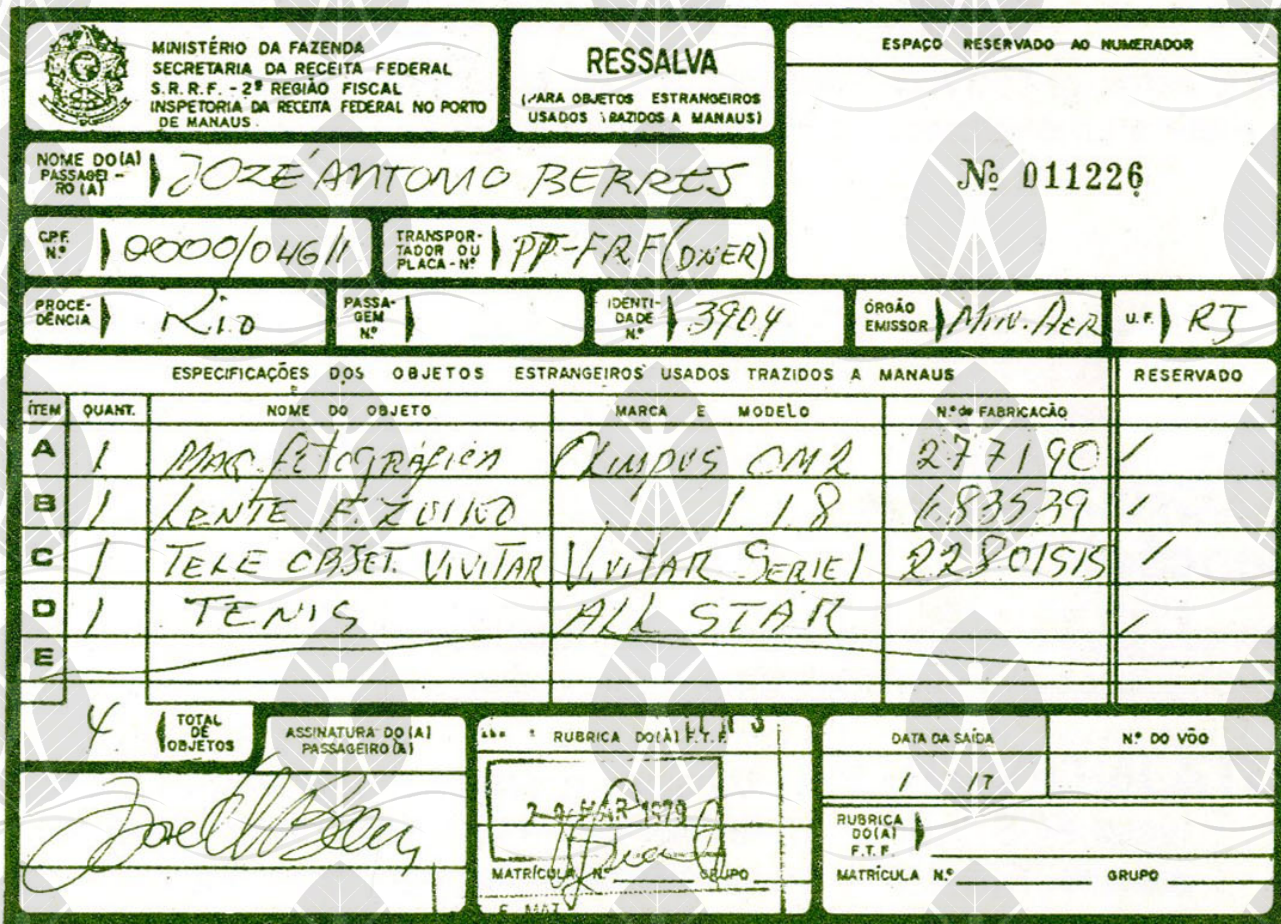 MINISTÉRIO DA FAZENDA
SECRETARIA DA RECEITA FEDERAL
S.R.R.F. - 2ª REGIÃO FISCAL
INSPETORIA DA RECEITA FEDERAL NO PORTO
DE MANAUS
RESSALVA
(PARA OBJETOS ESTRANGEIROS
USADOS TRAZIDOS A MANAUS)
ESPAÇO RESERVADO AO NUMERADOR
Nº 011226
NOME DO(A) PASSAGEI-RO(A) JOZÉ ANTONIO BERRES
C.P.F. N.º 0000/046/1 TRANSPOR-TADOR OU PLACA-Nº PP-FRF (DNER)
PROCE-DÊNCIA Rio PASSA-GEM N.º IDENTI-DADE N.º 3904 ÓRGÃO EMISSOR MIN. AER U.F. RJ
ESPECIFICAÇÕES DOS OBJETOS ESTRANGEIROS USADOS TRAZIDOS A MANAUS RESERVADO
ÍTEM QUANT. NOME DO OBJETO MARCA E MODELO N.º de FABRICAÇÃO
A 1 MAQ. fotográfica OLIMPUS OM2 277190 /
B 1 LENTE F. ZUIKO 1.1.8 683539 /
C 1 TELE OBJET. VIVITAR VIVITAR SERIE 1 22801515 /
D 1 TENIS ALL STAR /
E
4 TOTAL DE OBJETOS
ASSINATURA DO(A) PASSAGEIRO(A)
RUBRICA DO(A) F.T.F.
MAR 1979
MATRÍCULA N.º GRUPO
DATA DA SAÍDA Nº DO VÔO
/ 17
RUBRICA DO(A) F.T.F.
MATRÍCULA N.º GRUPO